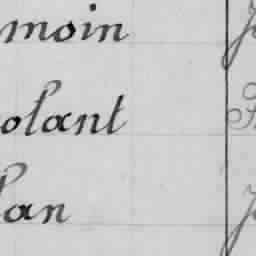 moin
olant
lan